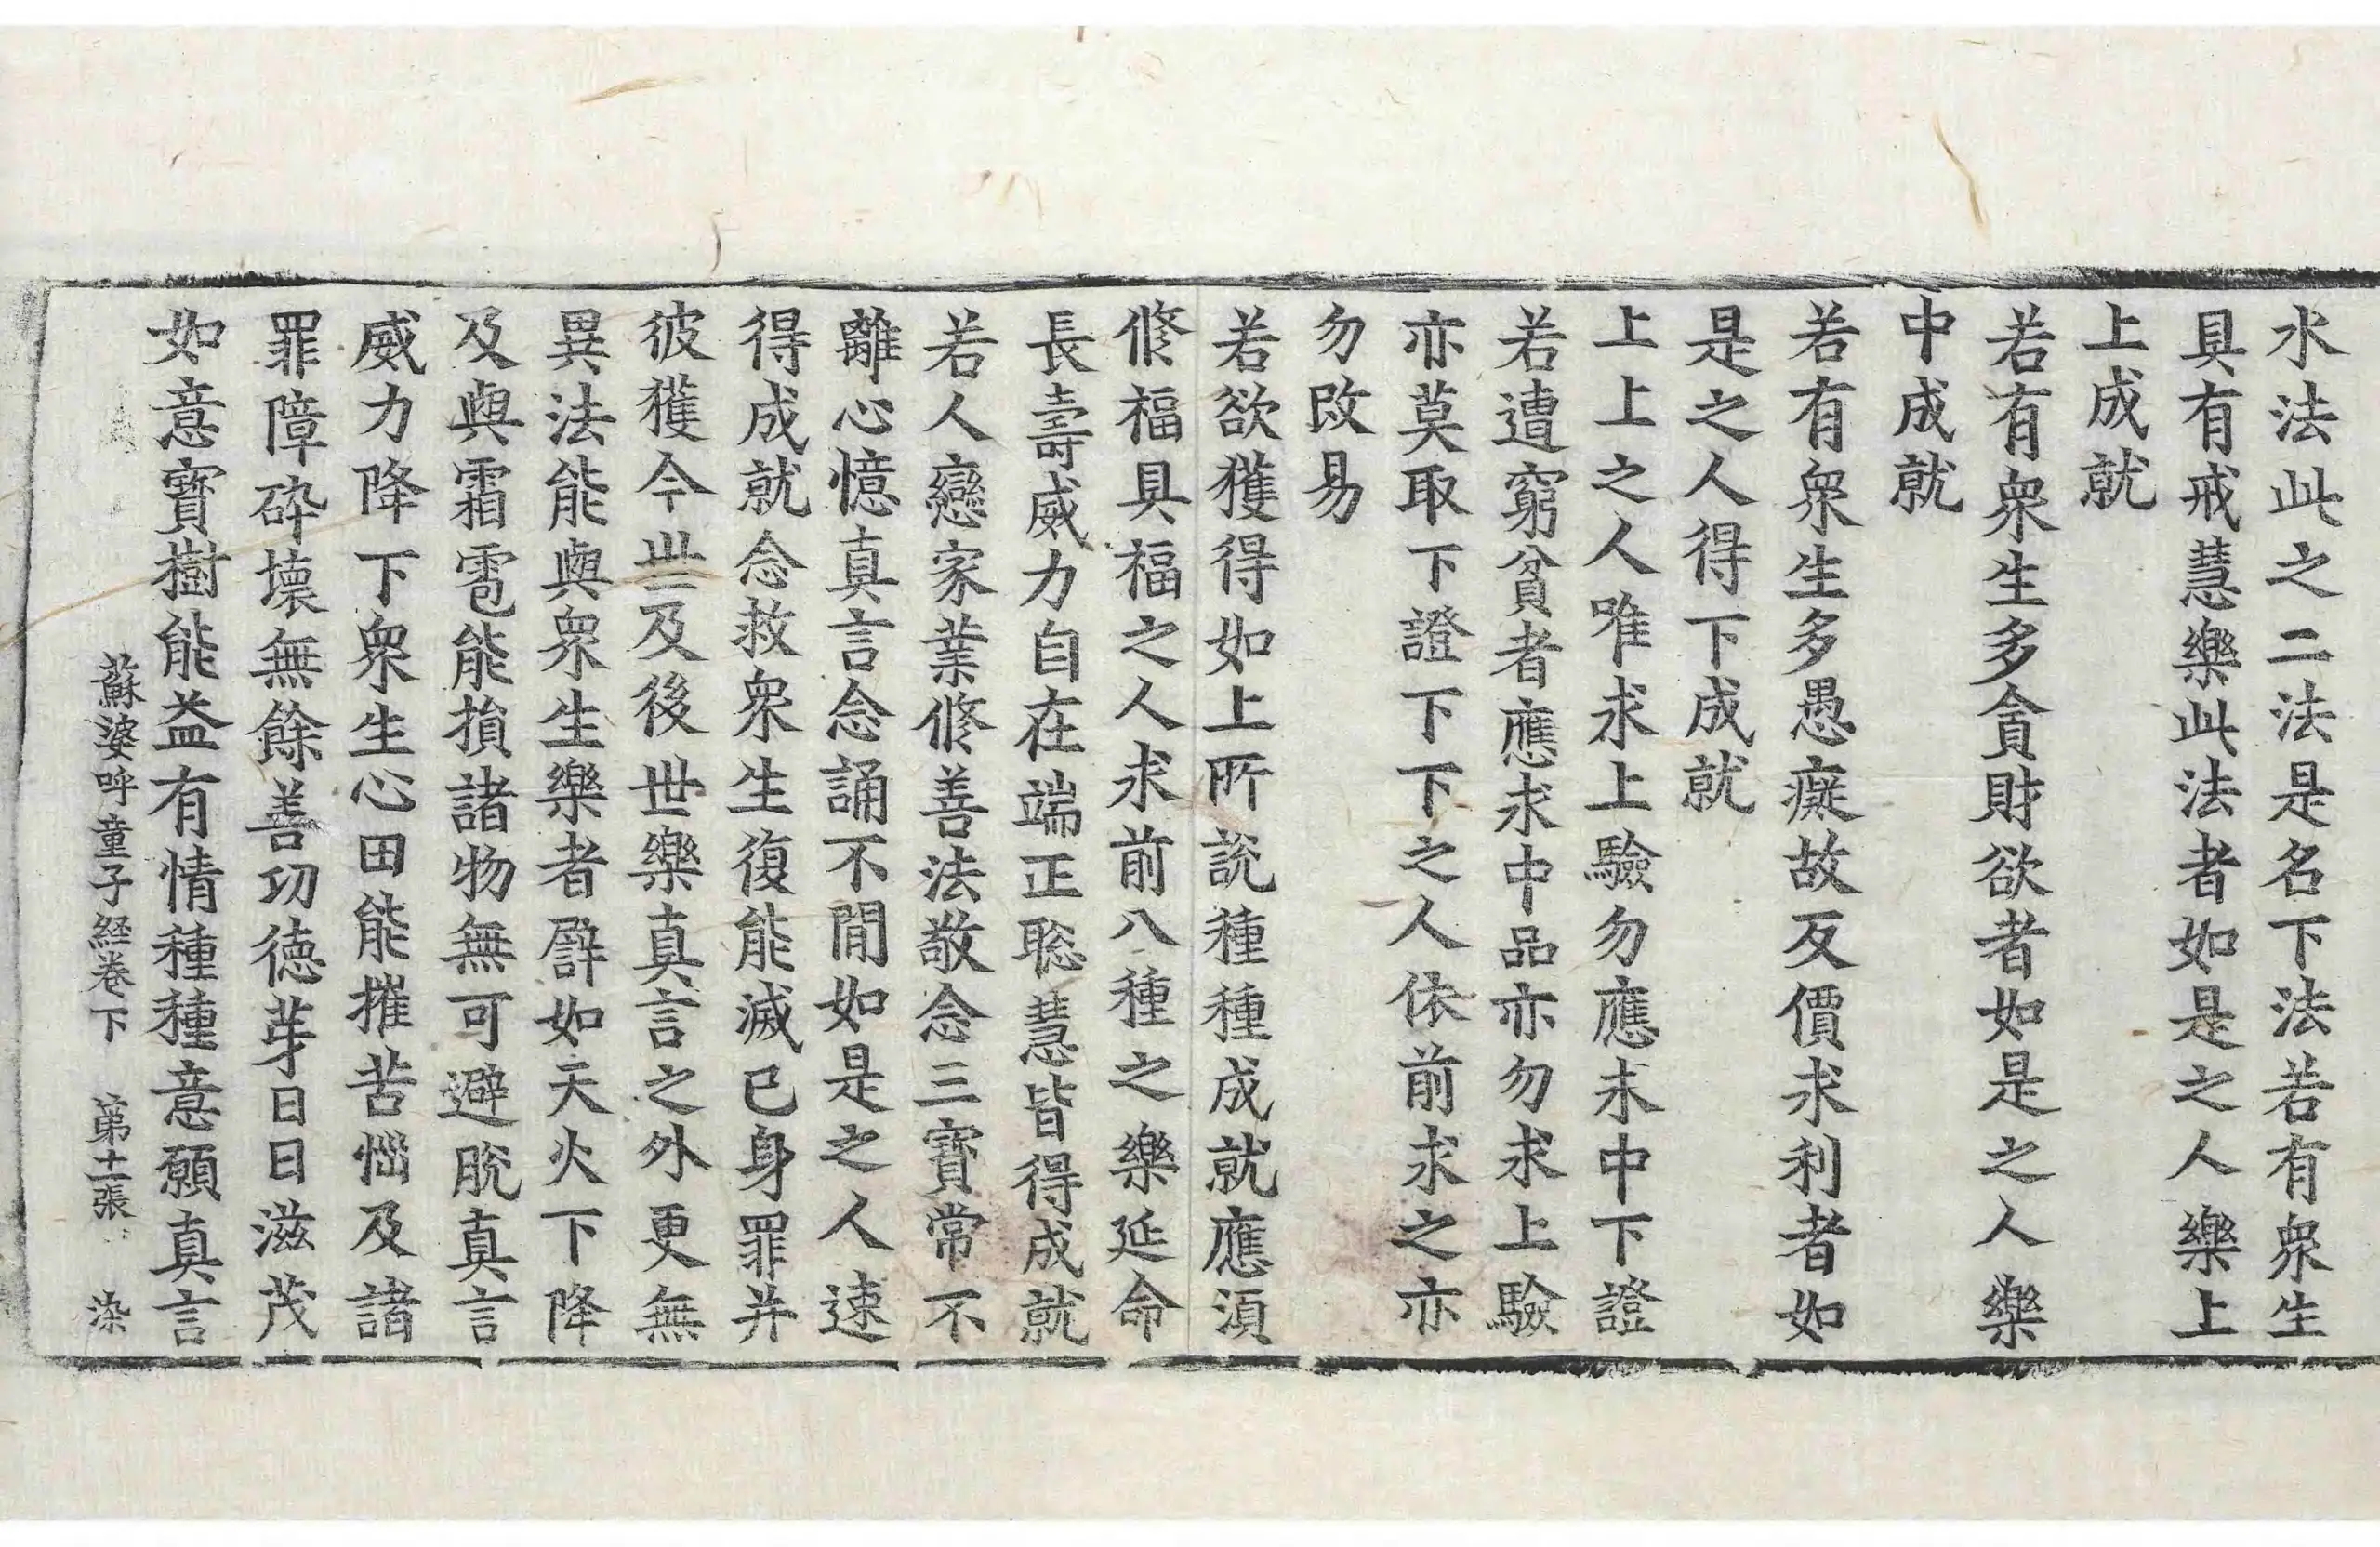 水法此之二法是名下法若有衆生
具有戒慧樂此法者如是之人樂上
上成就
若有衆生多貪財欲者如是之人樂
中成就
若有衆生多愚癡故反價求利者如
是之人得下成就
上上之人唯求上驗勿應末中下證
若遭窮貧者應求中品亦勿求上驗
亦莫取下證下下之人依前求之亦
勿改易
若欲獲得如上所說種種成就應須
修福具福之人求前八種之樂延命
長壽威力自在端正聡慧皆得成就
若人戀家業修善法敬念三寶常不
離心憶真言念誦不閒如是之人速
得成就念救衆生復能滅已身罪并
彼獲今世及後世樂真言之外更無
異法能與衆生樂者譬如天火下降
及與霜雹能損諸物無可避脫真言
威力降下衆生心田能摧苦惱及諸
罪障碎壞無餘善功德芽日日滋茂
如意寶樹能益有情種種意願真言
蘇婆呼童子経卷下 第十一張 染